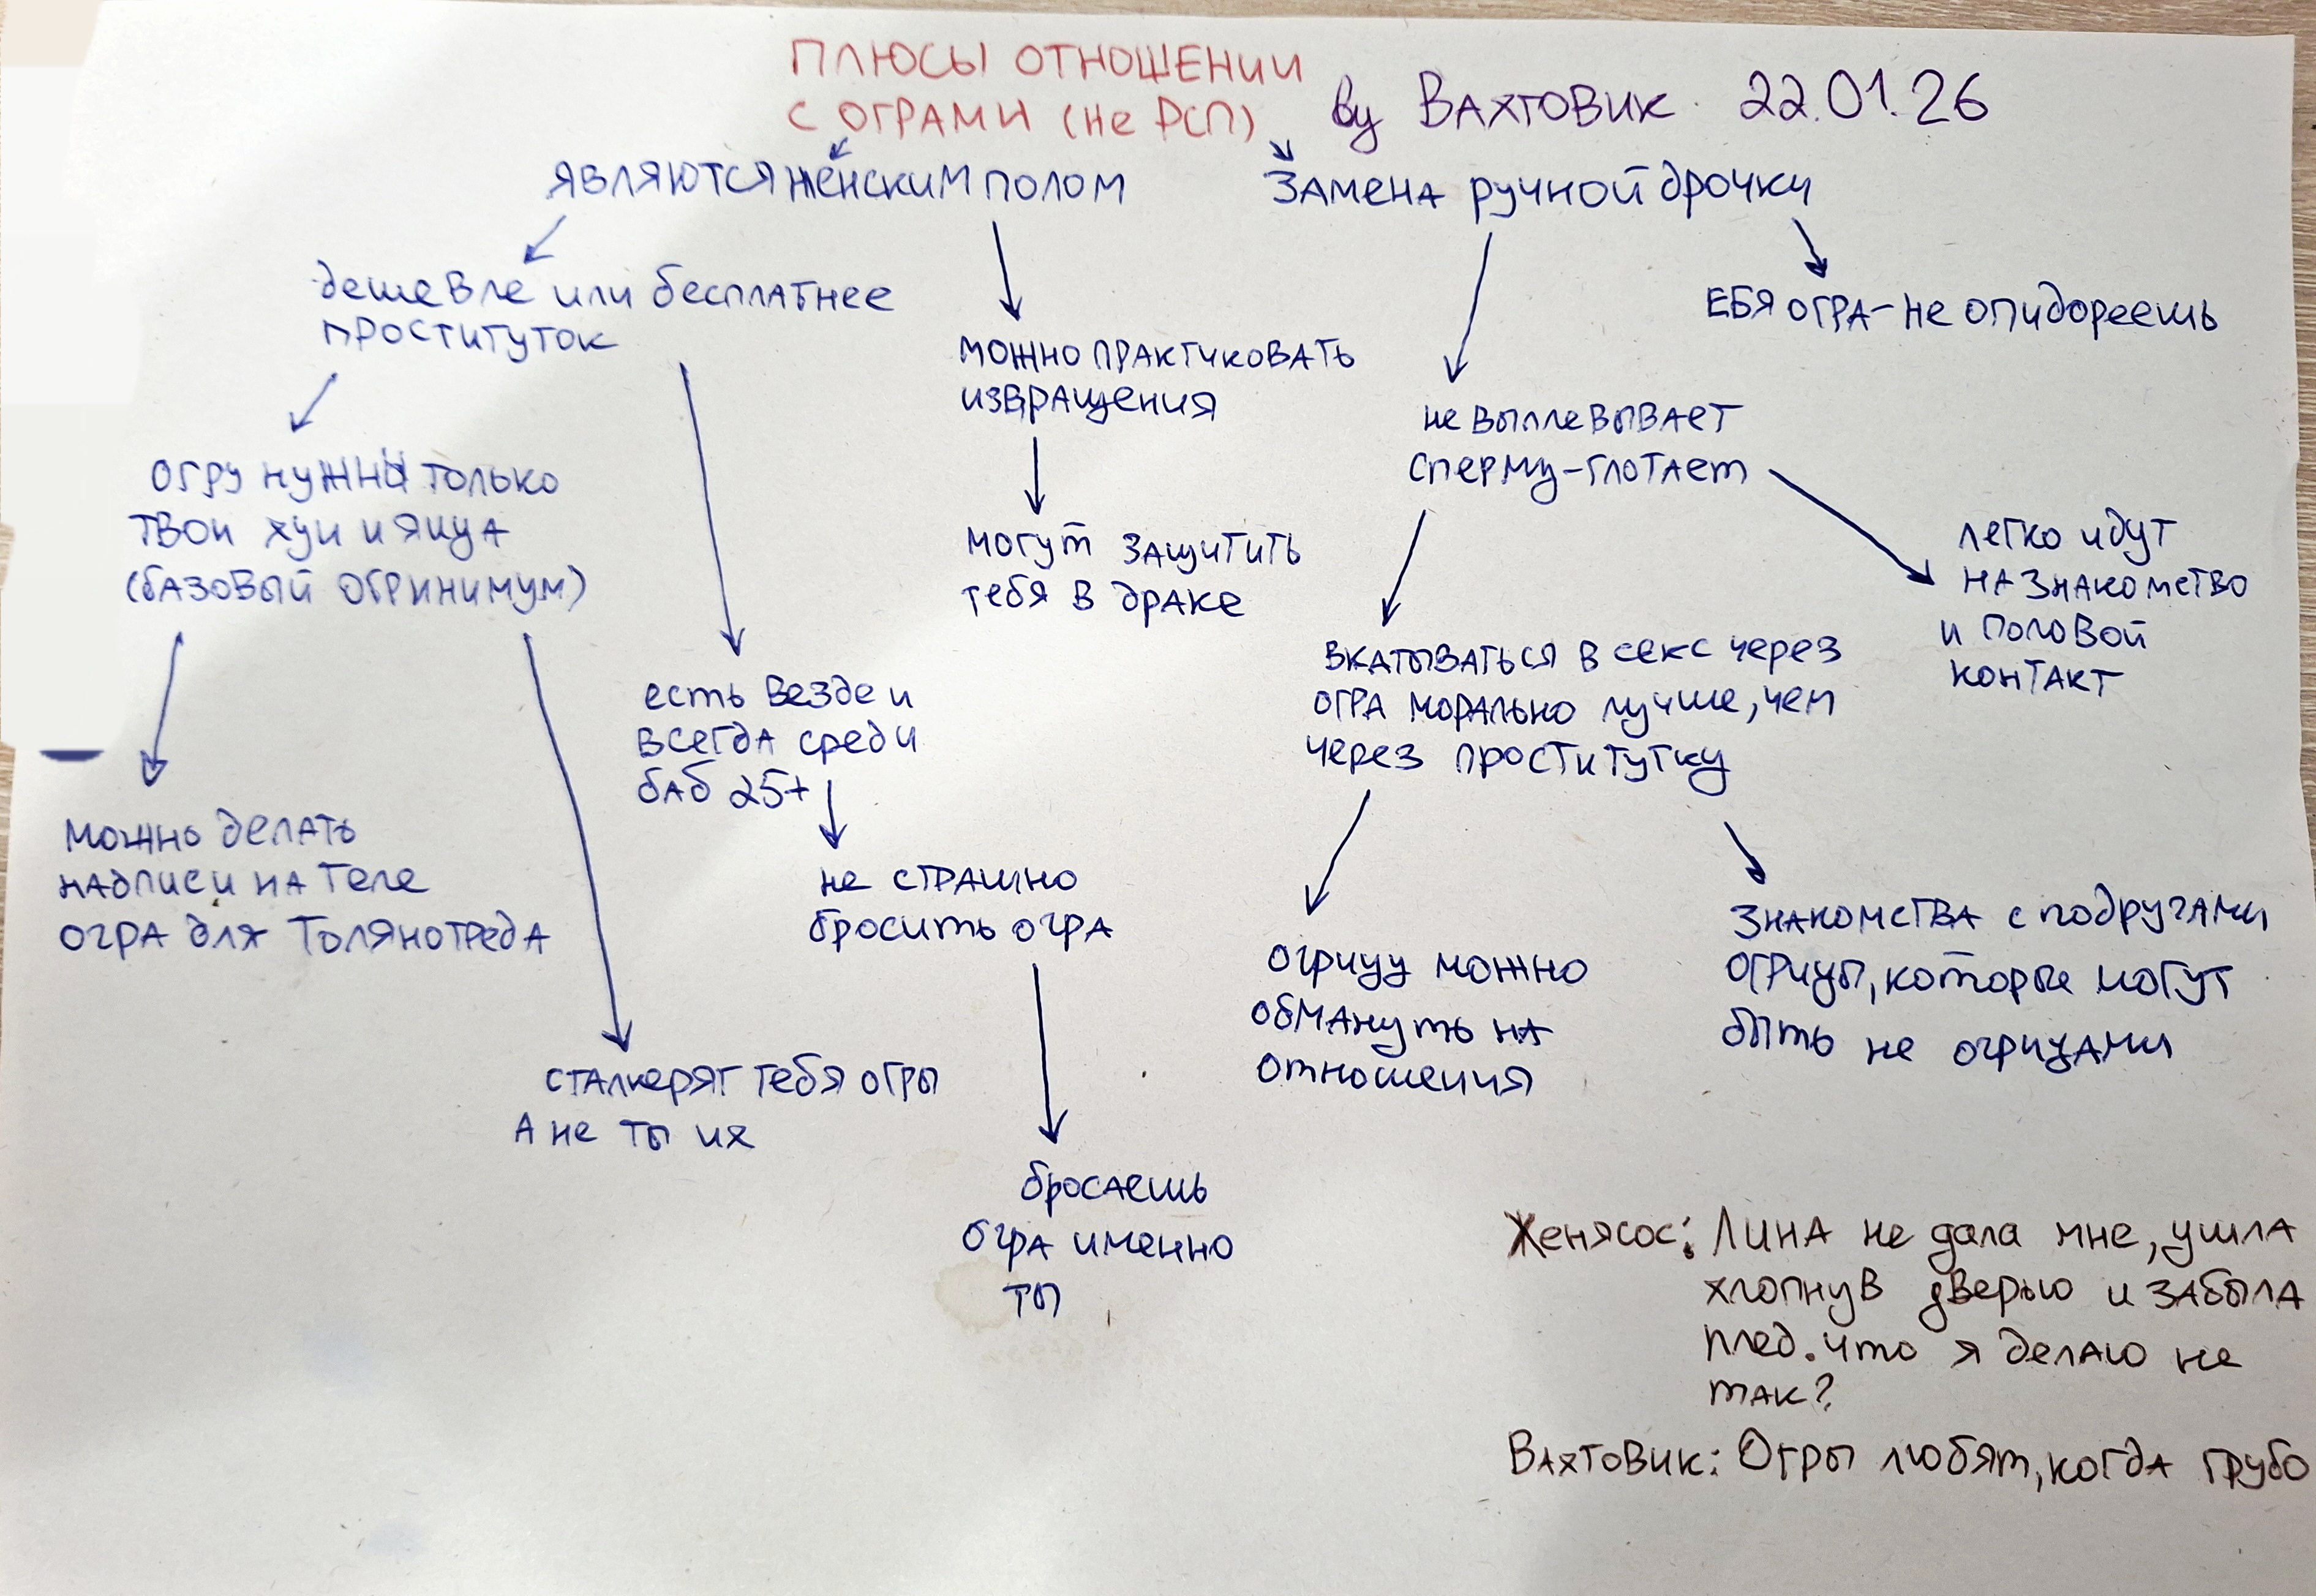 ПЛЮСЫ ОТНОШЕНИИ
С ОГРАМИ (не РСП)
by ВАХТОВИК. 22.01.26
ЯВЛЯЮТСЯ ЖЕНСКИМ ПОЛОМ
ЗАМЕНА РУЧНОЙ ДРОЧКИ
дешевле или бесплатнее
проституток
можно практиковать
извращения
ЕБЯ ОГРА - не опидореешь
огру нужны только
твои хуи и яица
(базовый огринимум)
не выплевывает
сперму - глотает
могут защитить
тебя в драке
легко идут
на знакомство
и половой
контакт
есть везде и
всегда среди
баб 25+
вкатываться в секс через
огра морально лучше, чем
через проститутку
можно делать
надписи на теле
огра для Толянотреда
не страшно
бросить огра
огрицу можно
обмануть на
отношения
знакомства с подругами
огрицы, которые могут
быть не огрицами
сталкерят тебя огры
А не ты их
бросаешь
огра именно
ты
Женясос: Лина не дала мне, ушла
хлопнув дверью и забыла
плед. что я делаю не
так?
Вахтовик: Огры любят, когда грубо